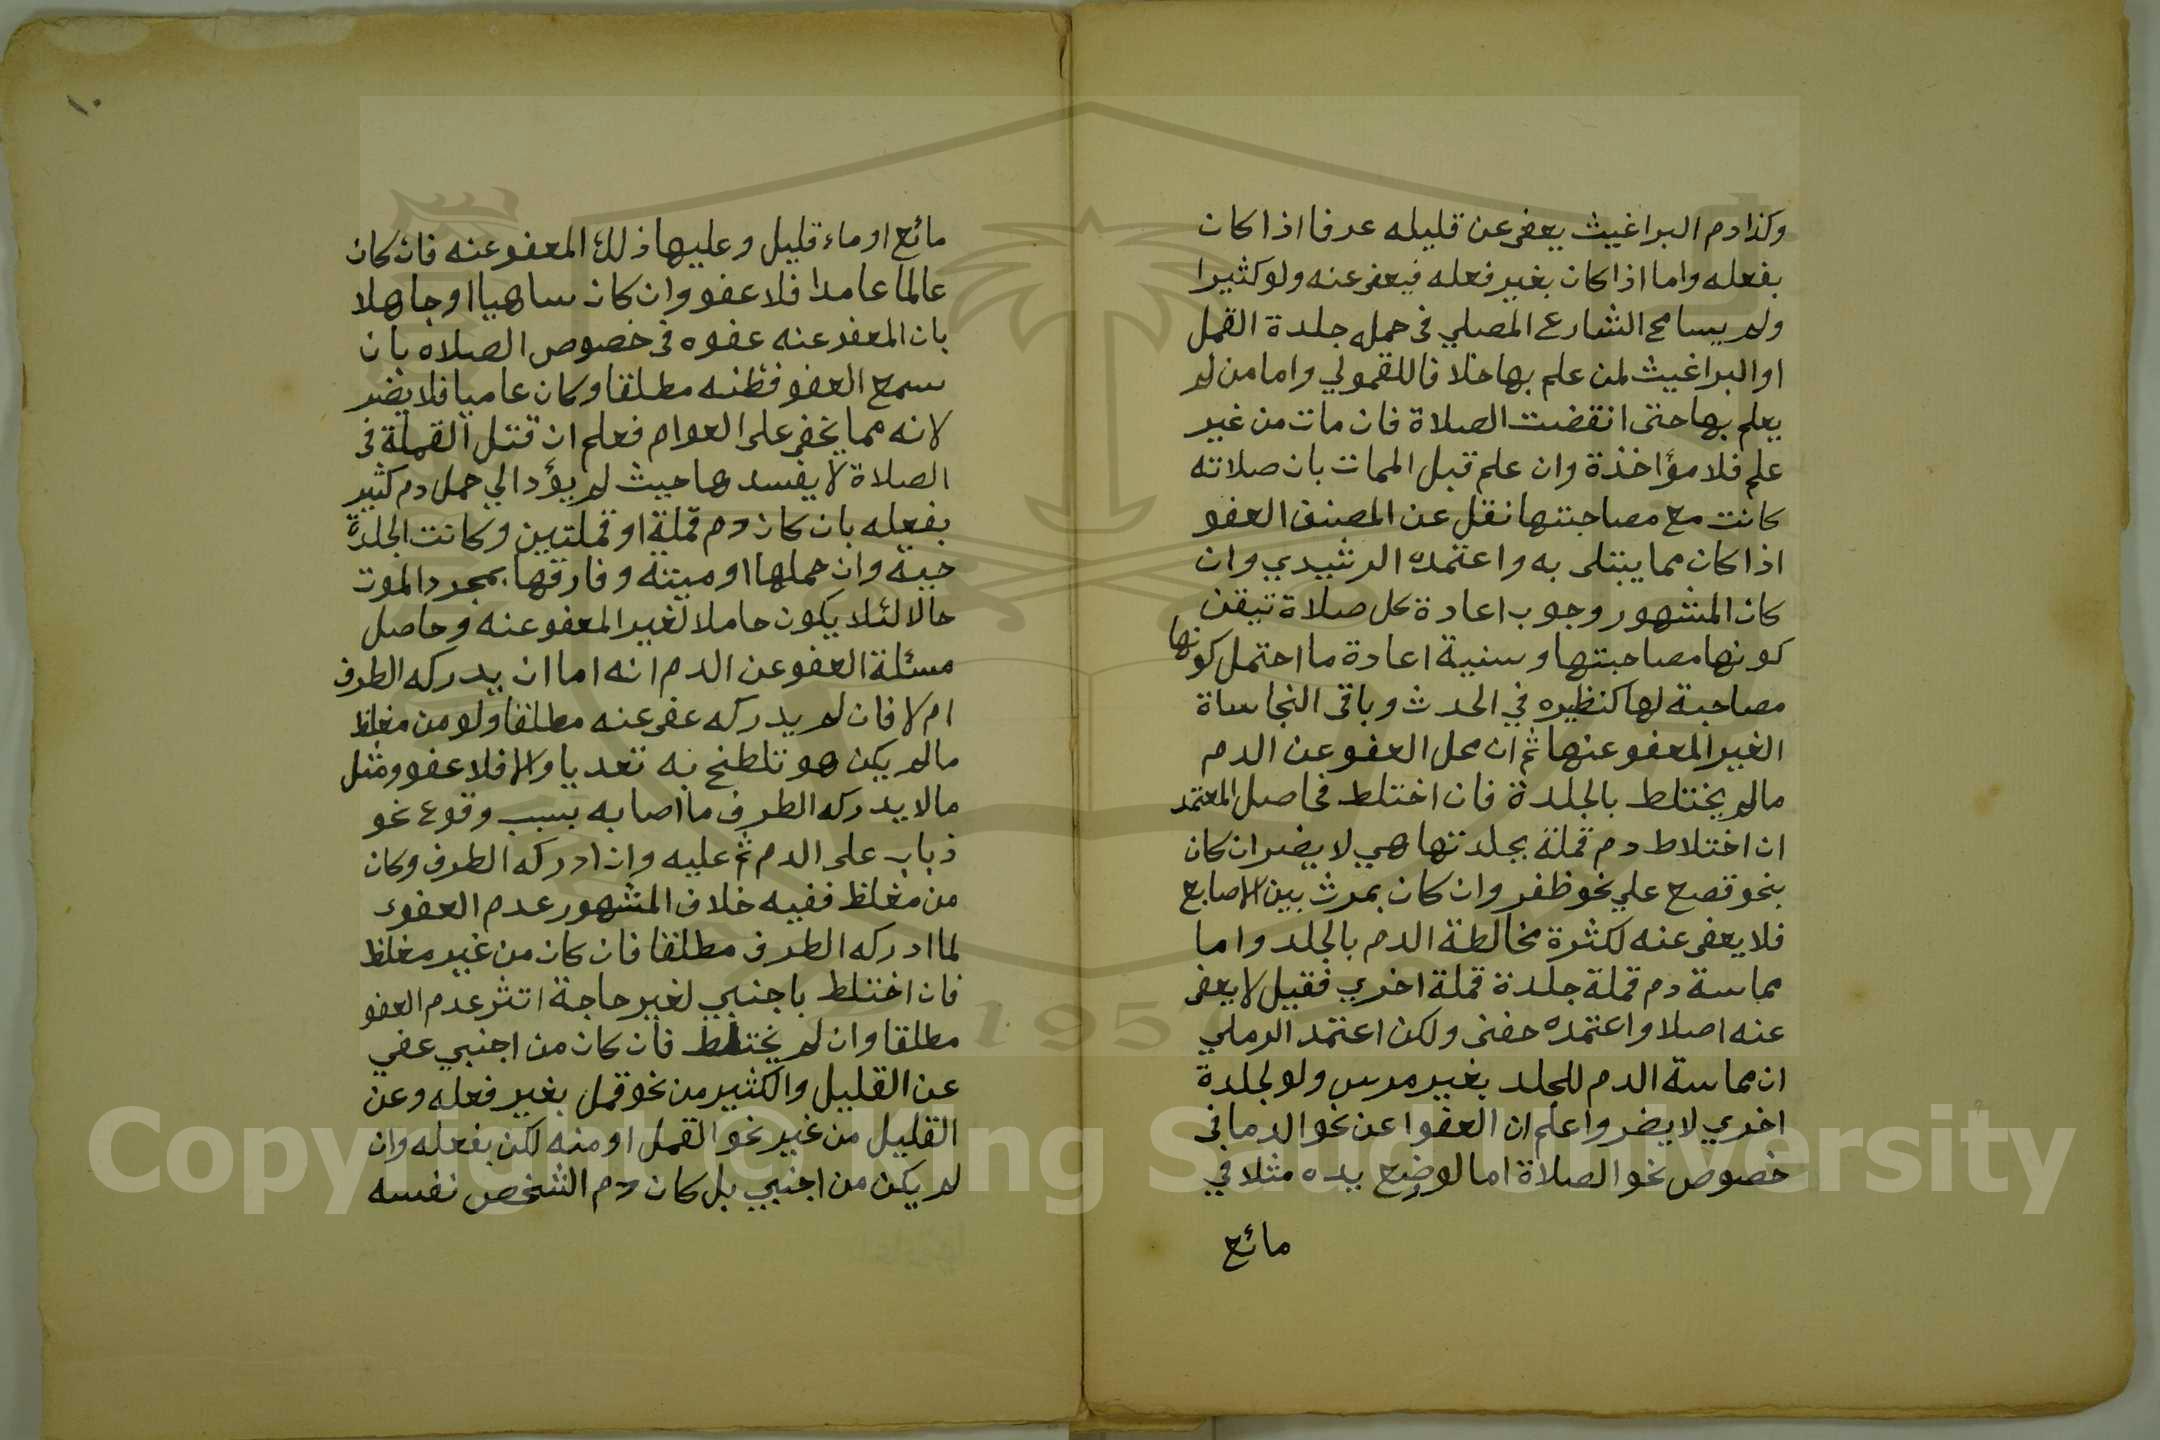 وكذا دم البراغيث يعفى عن قليله عرفا اذا كان
بفعله واما اذا كان بغير فعله فيعفى عنه ولو كثيرا
ولم يسامح الشارع المصلي في حمله جلدة القمل
او البراغيث لمن علم بها خلافا للقمولي واما من لم
يعلم بها حتى انقضت الصلاة فان مات من غير
علم فلا مؤاخذة وان علم قبل الممات بان صلاته
كانت مع مصاحبتها نقل عن المصنف العفو
اذا كان مما يبتلى به واعتمده الرشيدي وان
كان المشهور وجوب اعادة كل صلاة تيقن
كونها مصاحبتها وسنية اعادة ما احتمل كونها
مصاحبة لها كنظيره في الحدث وباقى النجاساة
الغير المعفو عنها ثم ان محل العفو عن الدم
مالم يختلط بالجلدة فان اختلط فحاصل المعتمد
ان اختلاط دم قملة بجلدتها هي لا يضر ان كان
بنحو قصع علي نحو ظفر وان كان بمرث بين الاصابع
فلا يعفى عنه لكثرة مخالطة الدم بالجلد واما
مماسة دم قملة جلدة قملة اخري فقيل لا يعفى
عنه اصلا واعتمده حفنى ولكن اعتمد الرملي
ان مماسة الدم للجلد بغير مرس ولو لجلدة
اخري لا يضر واعلم ان العفوا عن نحو الدما في
خصوص نحو الصلاة اما لو وضع يده مثلا في
مائع
١٠
مائع او ماء قليل وعليها ذلك المعفو عنه فان كان
عالما عامدا فلا عفو وان كان ساهيا او جاهلا
بان المعفو عنه عفوه في خصوص الصلاه بان
سمع العفو فظنه مطلقا وكان عاميا فلا يضر
لانه مما يخفى على العوام فعلم ان قتل القملة في
الصلاة لا يفسدها حيث لم يؤد الي حمل دم كثير
بفعله بان كان دم قملة او قملتين وكانت الجلدة
حية وان حملها او ميتة وفارقها بمجرد الموت
حالا لئلا يكون حاملا لغير المعفو عنه وحاصل
مسئلة العفو عن الدم انه اما ان يدركه الطرف
ام لا فان لم يدركه عفى عنه مطلقا ولو من مغلظ
مالم يكن هو تلطخ به تعديا والا فلا عفو ومثل
مالا يدركه الطرف ما اصابه بسبب وقوع نحو
ذباب على الدم ثم عليه وان ادركه الطرف وكان
من مغلظ ففيه خلاف المشهور عدم العفو
لما ادركه الطرف مطلقا فان كان من غير مغلظ
فان اختلط باجنبي لغير حاجة اثر عدم العفو
مطلقا وان لم يختلط فان كان من اجنبي عفي
عن القليل والكثير من نحو قمل بغير فعله وعن
القليل من غير نحو القمل او منه لكن بفعله وان
لم يكن من اجنبي بل كان دم الشخص نفسه
Copyright © King Saud University
1957